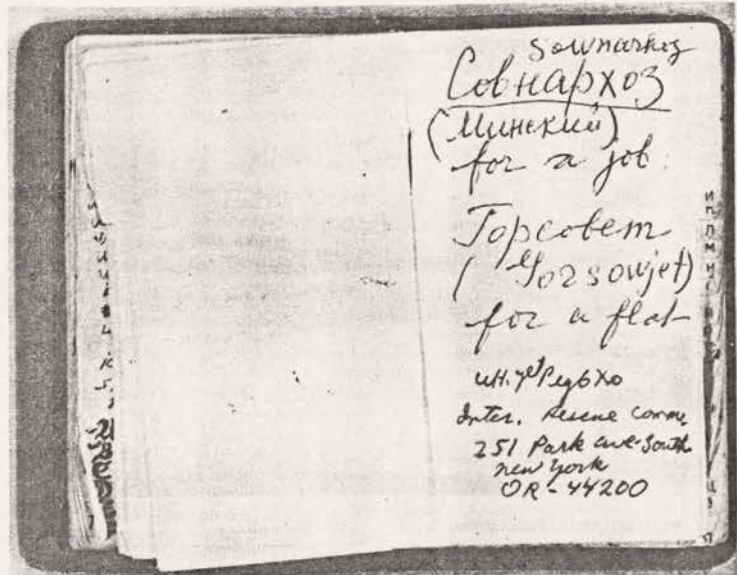 Sownarkoz
Совнархоз
(Минский)
for a job
Горсовет
(Gorsowjet)
for a flat
Inter. Rescue Comm.
251 Park ave South
new York
OR-44200